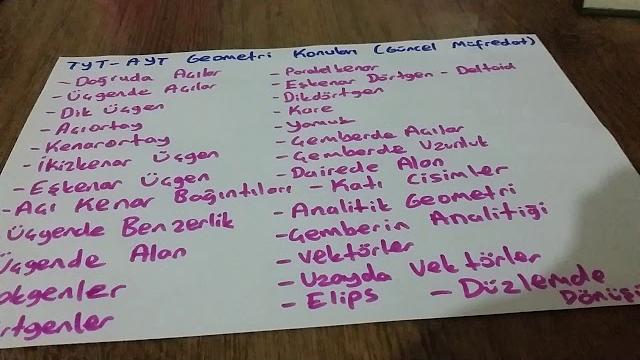 TYT-AYT Geometri Konuları (Güncel Müfredat)
- Doğruda Açılar
- Üçgende Açılar
- Dik Üçgen
- Açıortay
- Kenarortay
- İkizkenar Üçgen
- Eşkenar Üçgen
- Açı Kenar Bağıntıları
- Üçgende Benzerlik
Üçgende Alan
okgenler
rtgenler
- Paralelkenar
- Eşkenar Dörtgen - Deltoid
- Dikdörtgen
- Kare
- Yamuk
- Çemberde Açılar
- Çemberde Uzunluk
- Dairede Alan
- Katı Cisimler
- Analitik Geometri
- Çemberin Analitiği
- Vektörler
- Uzayda Vektörler
- Elips - Düzlemde
Dönüşü